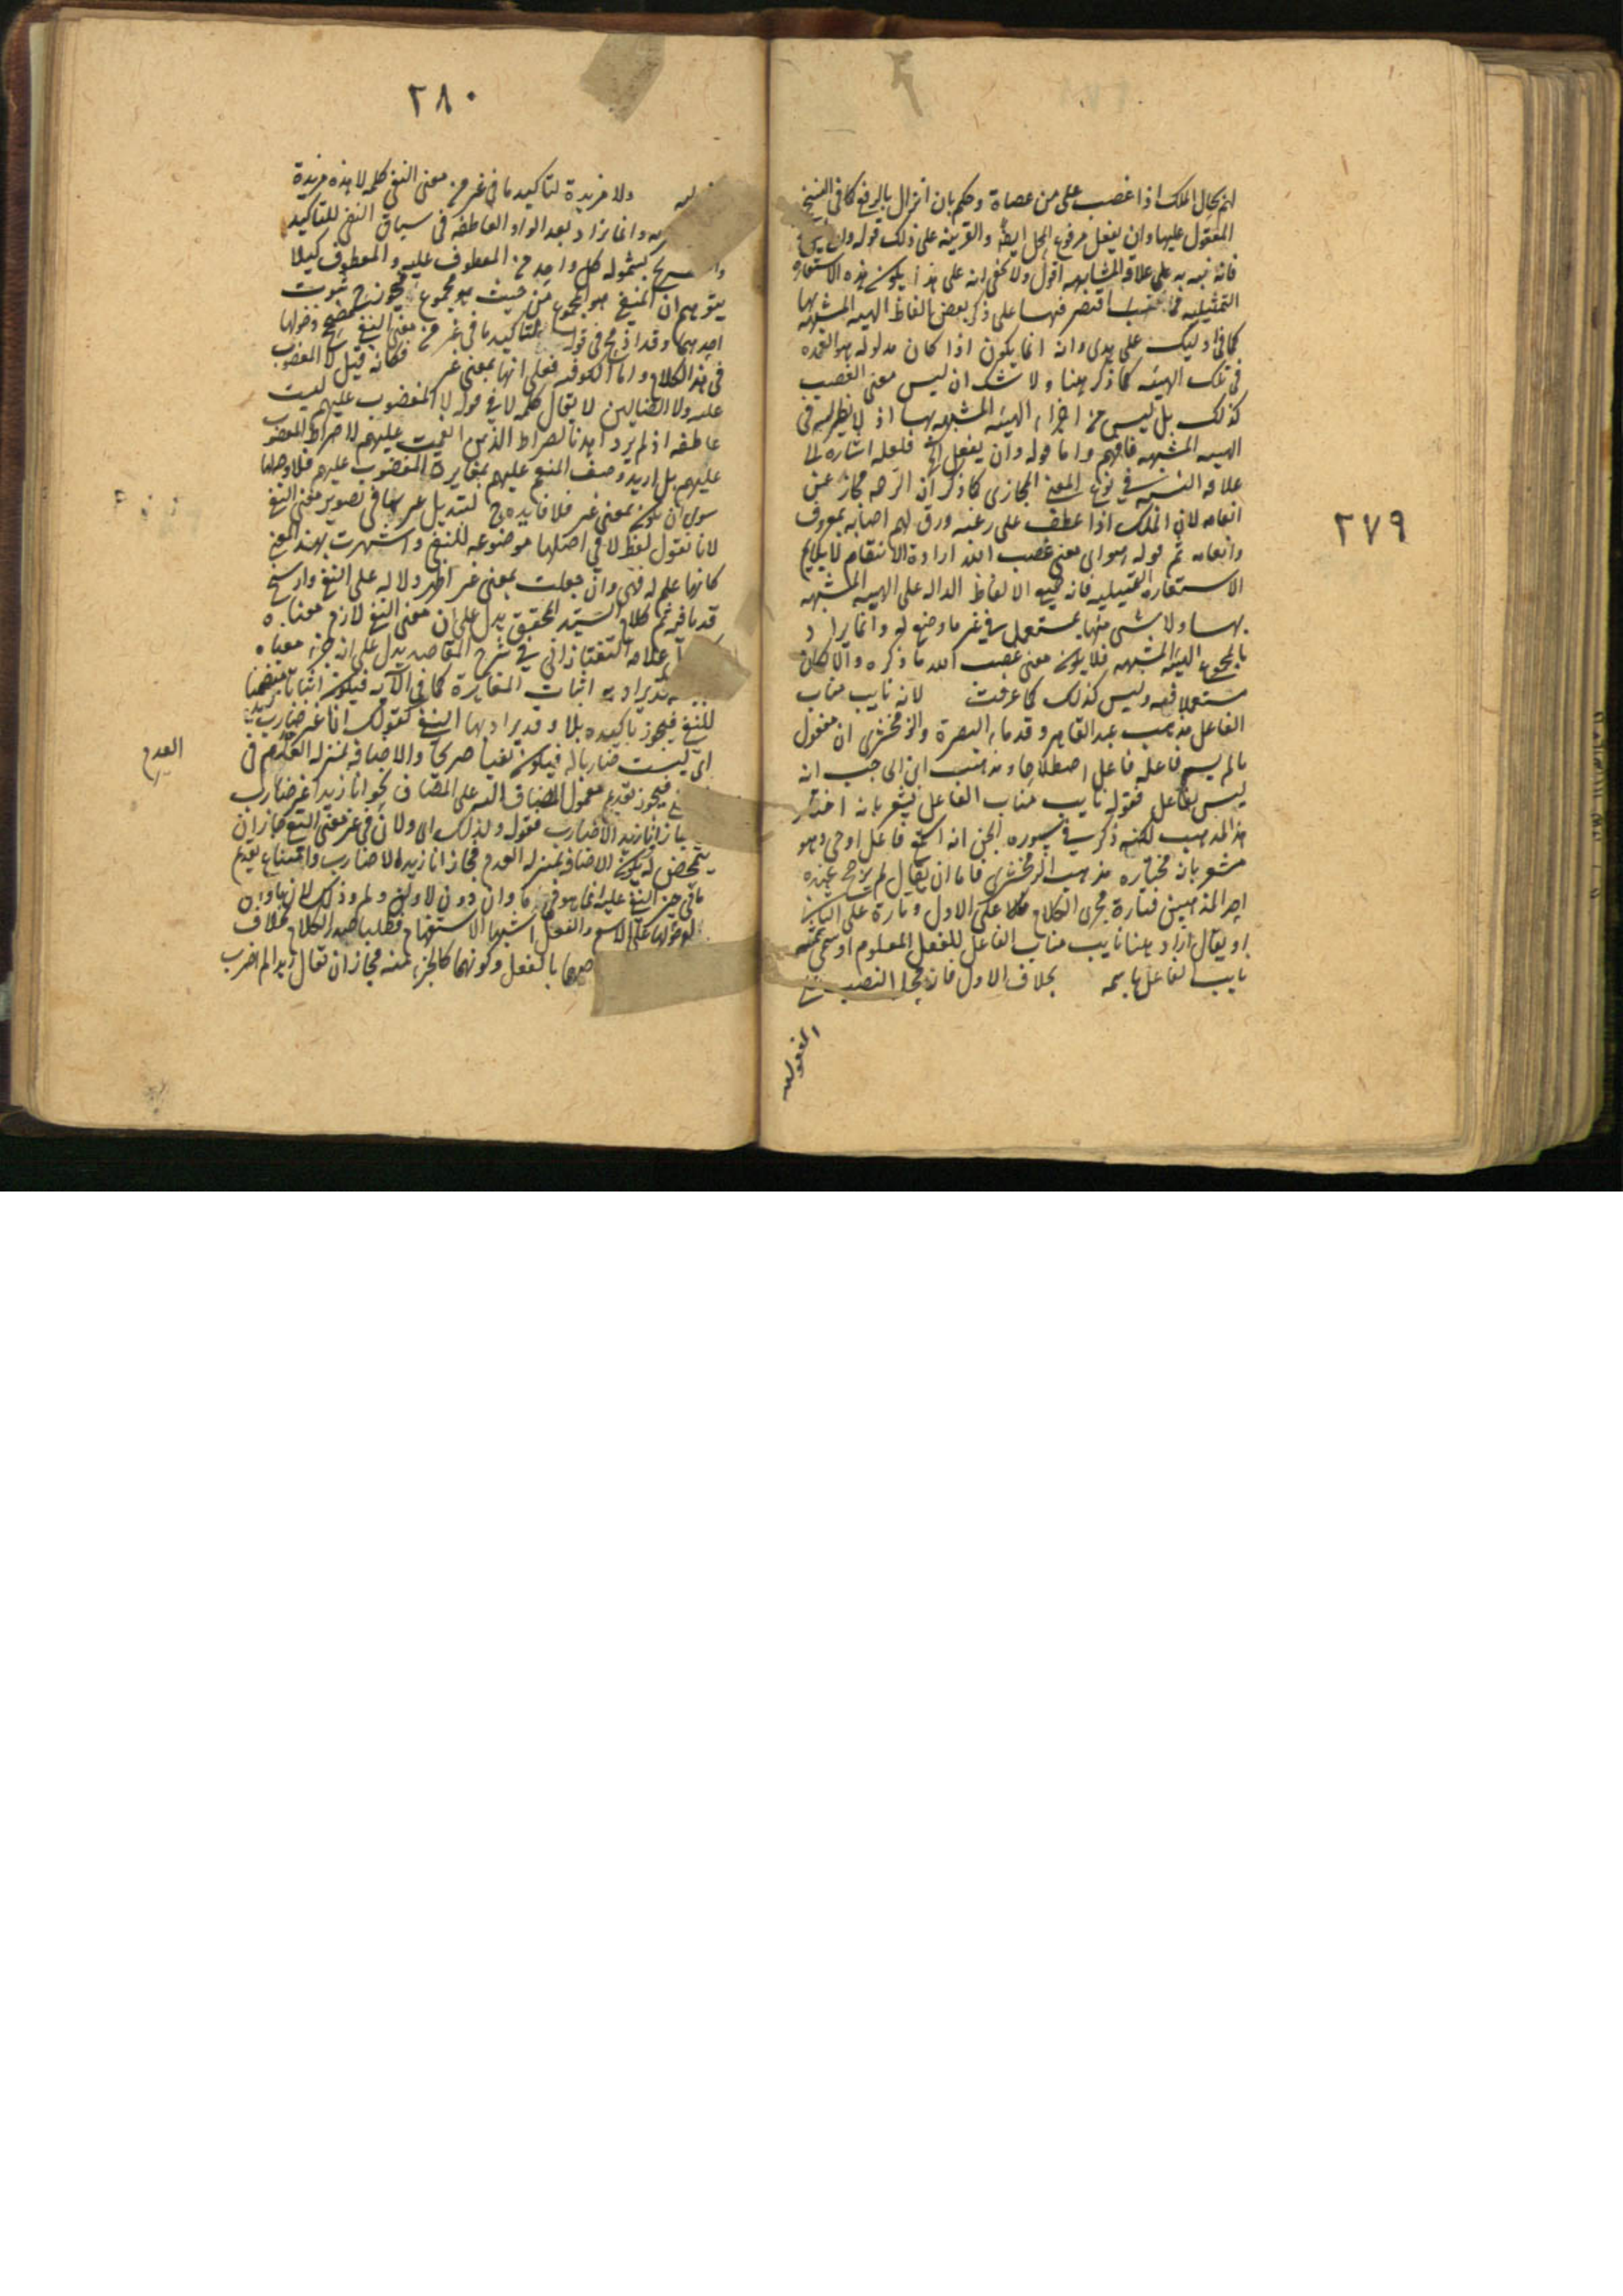 ٢٧٩
لهم بحال الملك اذا غضب على من عصاه وحكم بان انزال بالرفع كما في النسخ
المعقول عليها وان يفعل مرفوع المحل ايضا والقرينة على ذلك قوله وان
فانه نبه به على علاقة المشابهة اقول ولا يخفى انه على هذا يكون هذه الاستعارة
التمثيلية مما اقتصر فيها على ذكر بعض الفاظ الهيئة المشبهة بها
كما في اوليك على هدى وانه انما يكون اذا كان مدلوله هو العمدة
في تلك الهيئة كما ذكر هنا ولا شك ان ليس معنى الغضب
كذلك بل ليس من اجزاء الهيئة المشبهة بها اذ لا نظير له في
الهيئة المشبهة فافهم واما قوله وان يفعل الخ فلعله اشارة الى
علاقة في نوع المعنى المجازي كما ذكر ان الرحمة مجاز عن
انعامه لان الملك اذا عطف على رعيته ورق لهم اصابهم بمعروفه
وانعامه ثم قوله هو اي معنى غضب الله ارادة الانتقام لا يلائم
الاستعارة التمثيلية فانه جميع الالفاظ الدالة على الهيئة المشبهة
بها ولا شيء منها بمستعمل في غير ما وضع له وانما يراد
بالمجموع الهيئة المشبهة فلا يكون معنى غضب الله ما ذكره والا لكان
مستعملا فيه وليس كذلك كما عرفت لانه نايب مناب
الفاعل مذهب عبد القاهر وقدماء البصرة والزمخشري ان مفعول
ما لم يسم فاعله فاعل اصطلاحا ومذهب ابن الحاجب انه
ليس بفاعل فقوله نايب مناب الفاعل يشعر بانه اختار
هذا المذهب لكنه ذكر في سورة الجن انه استمع فاعل اوحى وهو
مشعر بان مختاره مذهب الزمخشري فاما ان يقال لم يرجح عنده
احد المذهبين فتارة مجرى الكلام على الاول وتارة على الثاني
او يقال اراد هنا نايب مناب الفاعل للفعل المعلوم او سمى
نايب الفاعل باسمه بخلاف الاول فانه محل النصب
المفعولية
٢٨٠
ولا مزيدة لتاكيد ما في غير من معنى النفي كلمة لا هذه مزيدة
وانما تزاد بعد الواو العاطفة في سياق النفي للتاكيد
بشموله كل واحد من المعطوف عليه والمعطوف كيلا
يتوهم ان المنفي هو المجموع من حيث هو مجموع فيجوز ثبوت
احدهما وقد في قوله لتاكيد ما في غير من معنى النفي دخولها
في هذا الكلام واما الكوفية فعلى انها بمعنى غير فكانه قيل لا المغضوب
عليهم ولا الضالين لا يقال كلمة لا في قوله لا المغضوب عليهم ليست
عاطفة اذ لم يرد اهدنا الصراط الذين انعمت عليهم لا صراط المغضوب
عليهم بل اريد وصف المنعم عليهم بمغايرة المغضوب عليهم فلا وجه لها
سوى ان تكون بمعنى غير فلا فايدة في تبديل غير بها في تصوير معنى النفي
لانا نقول لفظ لا في اصلها موضوعة للنفي واشتهرت بهذا المعنى
كانها علم له فهي وان جعلت بمعنى غير اظهر دلالة على النفي وارسخ
قدما فيه ثم كلام السيد المحقق يدل على ان معنى النفي لازم معناه
علامة التفتازاني في شرح المقاصد يدل على انه جزء معناه
قد يراد به اثبات المغايرة كما في الآية فيكون اثباتا متضمنا
للنفي فيجوز تاكيده بلا وقد يراد بها النفي كقولك انا غير ضارب زيدا
اي ليست ضاربا له فيكون نفيا صريحا والاضافة بمنزلة العدم في
فيجوز تقديم معمول المضاف اليه على المضاف نحو انا زيدا غير ضارب
جاز انا زيدا لا ضارب فقوله ولذلك اي ولان في غير معنى النفي جاز ان
يتمحض له فيكون الاضافة بمنزلة العدم فجاز انا زيدا لا ضارب وامتناع تقديم
ما في حيز النفي عليه انما هو في ما وان دون لا ولن ولم وذلك لان ما وان
لدخولها على الاسم والفعل اشبها الاستفهام فطلبا صدر الكلام بخلاف
بالفعل وكونهما كالجزء منه فجاز ان يقال زيدا لم اضرب
العدم